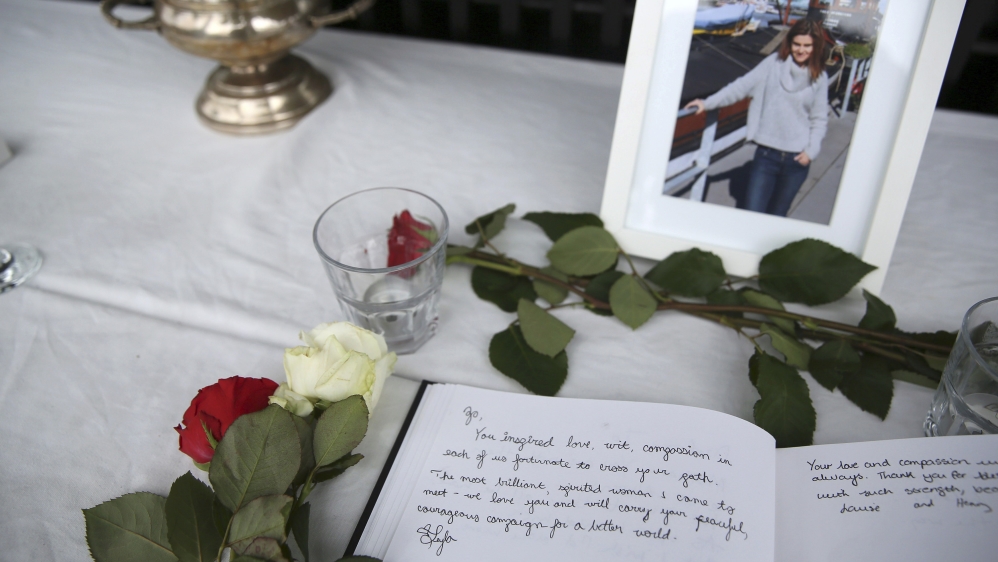 Jo,
You inspired love, wit, compassion in
each of us fortunate to cross your path.
The most brilliant, spirited woman I came to
met - we love you and will carry your peaceful,
courageous campaign for a better world.
Skyla
Your love and compassion
always. Thank you for
with such strength,
Louise and Henry